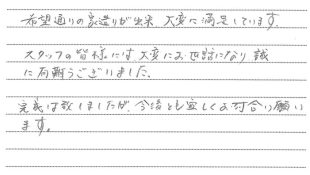 希望通りの家造りが出来 大変に満足しています.
スタッフの皆様には、大変にお世話になり 誠
に有難うございました、
完成は致しましたが、今後とも宜しくお付合い願い
ます。